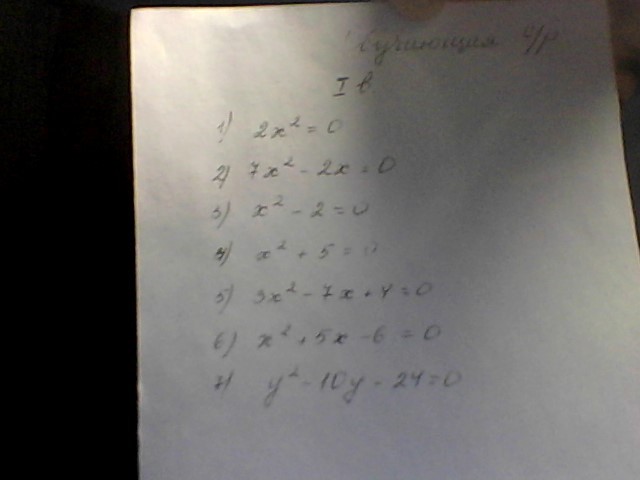 Обучающая с/р
I в.
1) 2x² = 0
2) 7x² - 2x = 0
3) x² - 2 = 0
4) x² + 5 = 0
5) 3x² - 7x + 4 = 0
6) x² + 5x - 6 = 0
7) y² - 10y - 24 = 0